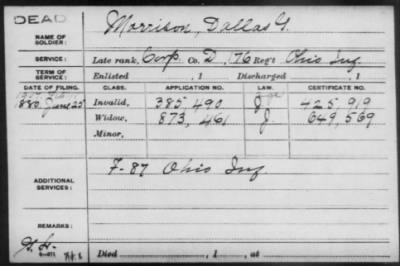 DEAD
NAME OF SOLDIER: Morrison, Dallas G.
SERVICE: Late rank, Corp Co. D, 176 Reg't Ohio Inf.
TERM OF SERVICE: Enlisted , 1 Discharged , 1
DATE OF FILING. CLASS. APPLICATION NO. LAW. CERTIFICATE NO.
1880 June 25 Invalid, 385,490 425,919
Widow, 873,461 649,569
Minor,
ADDITIONAL SERVICES: F-87 Ohio Inf
REMARKS:
Died , 1 , at